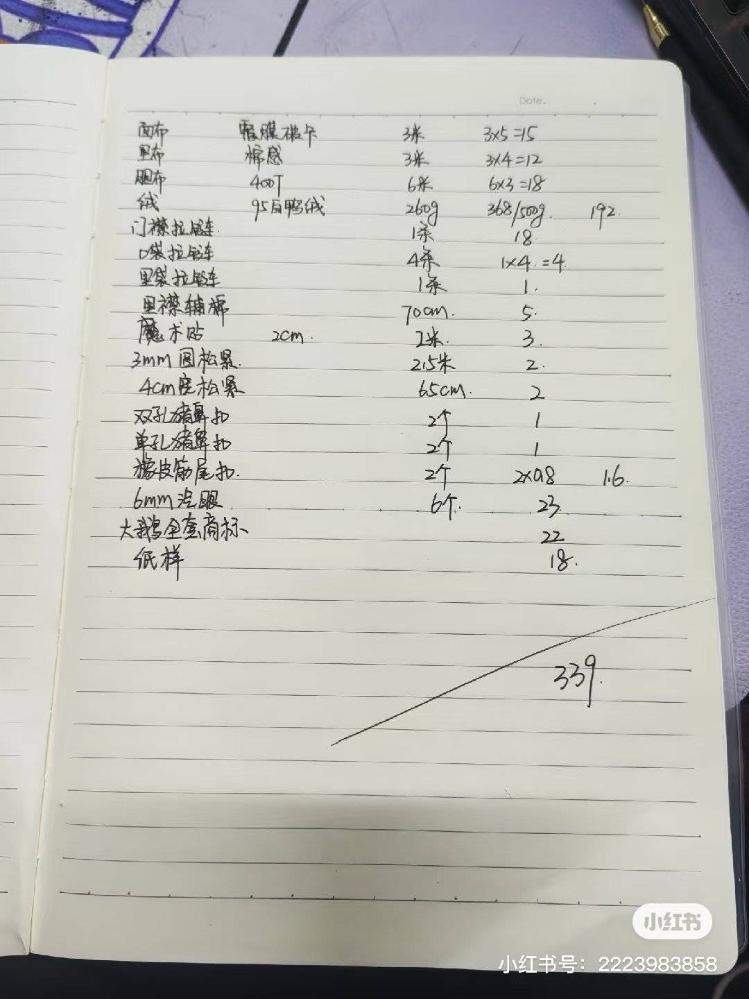 Date.
面布 覆膜磁卡 3米 3×5=15
里布 棉感 3米 3×4=12
胆布 400T 6米 6×3=18
绒 95白鸭绒 260g 368/500g 192
门襟拉链 1条 18
口袋拉链 4条 1×4=4
里袋拉链 1条 1.
里襟辅棉 70cm. 5.
魔术贴 2cm. 2米 3.
3mm圆松紧 2.5米 2.
4cm宽松紧 65cm. 2
双孔猪鼻扣 2个 1
单孔猪鼻扣 2个 1
橡皮筋尾扣 2个 2×0.8 1.6
6mm汽眼 6个. 23
大鹅全套商标 22
纸样 18.
339.
小红书
小红书号:2223983858